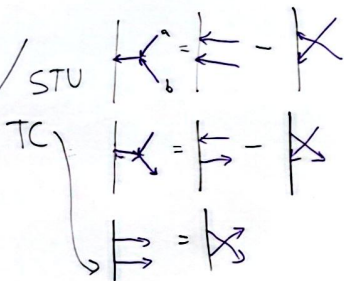 STU a = −
b
TC = −
=